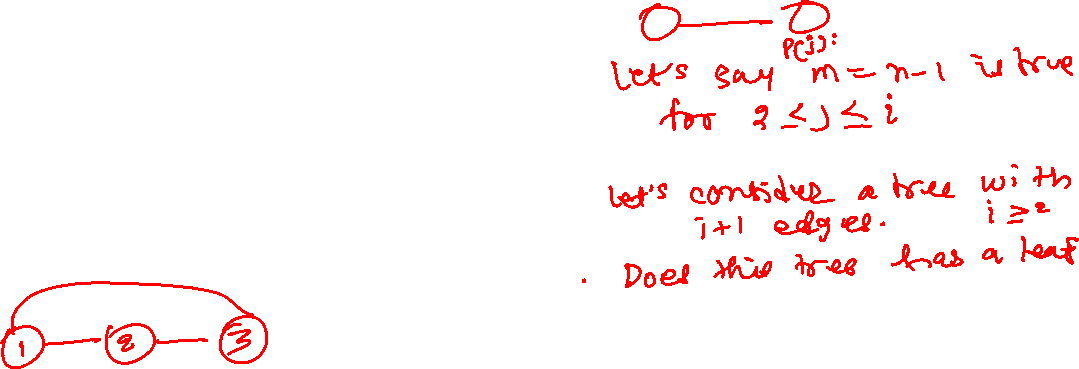 P(j):
Let's say m = n-1 is true
for 2 ≤ j ≤ i
Let's consider a tree with
i+1 edges. i ≥ 2
. Does this tree has a leaf
1 2 3